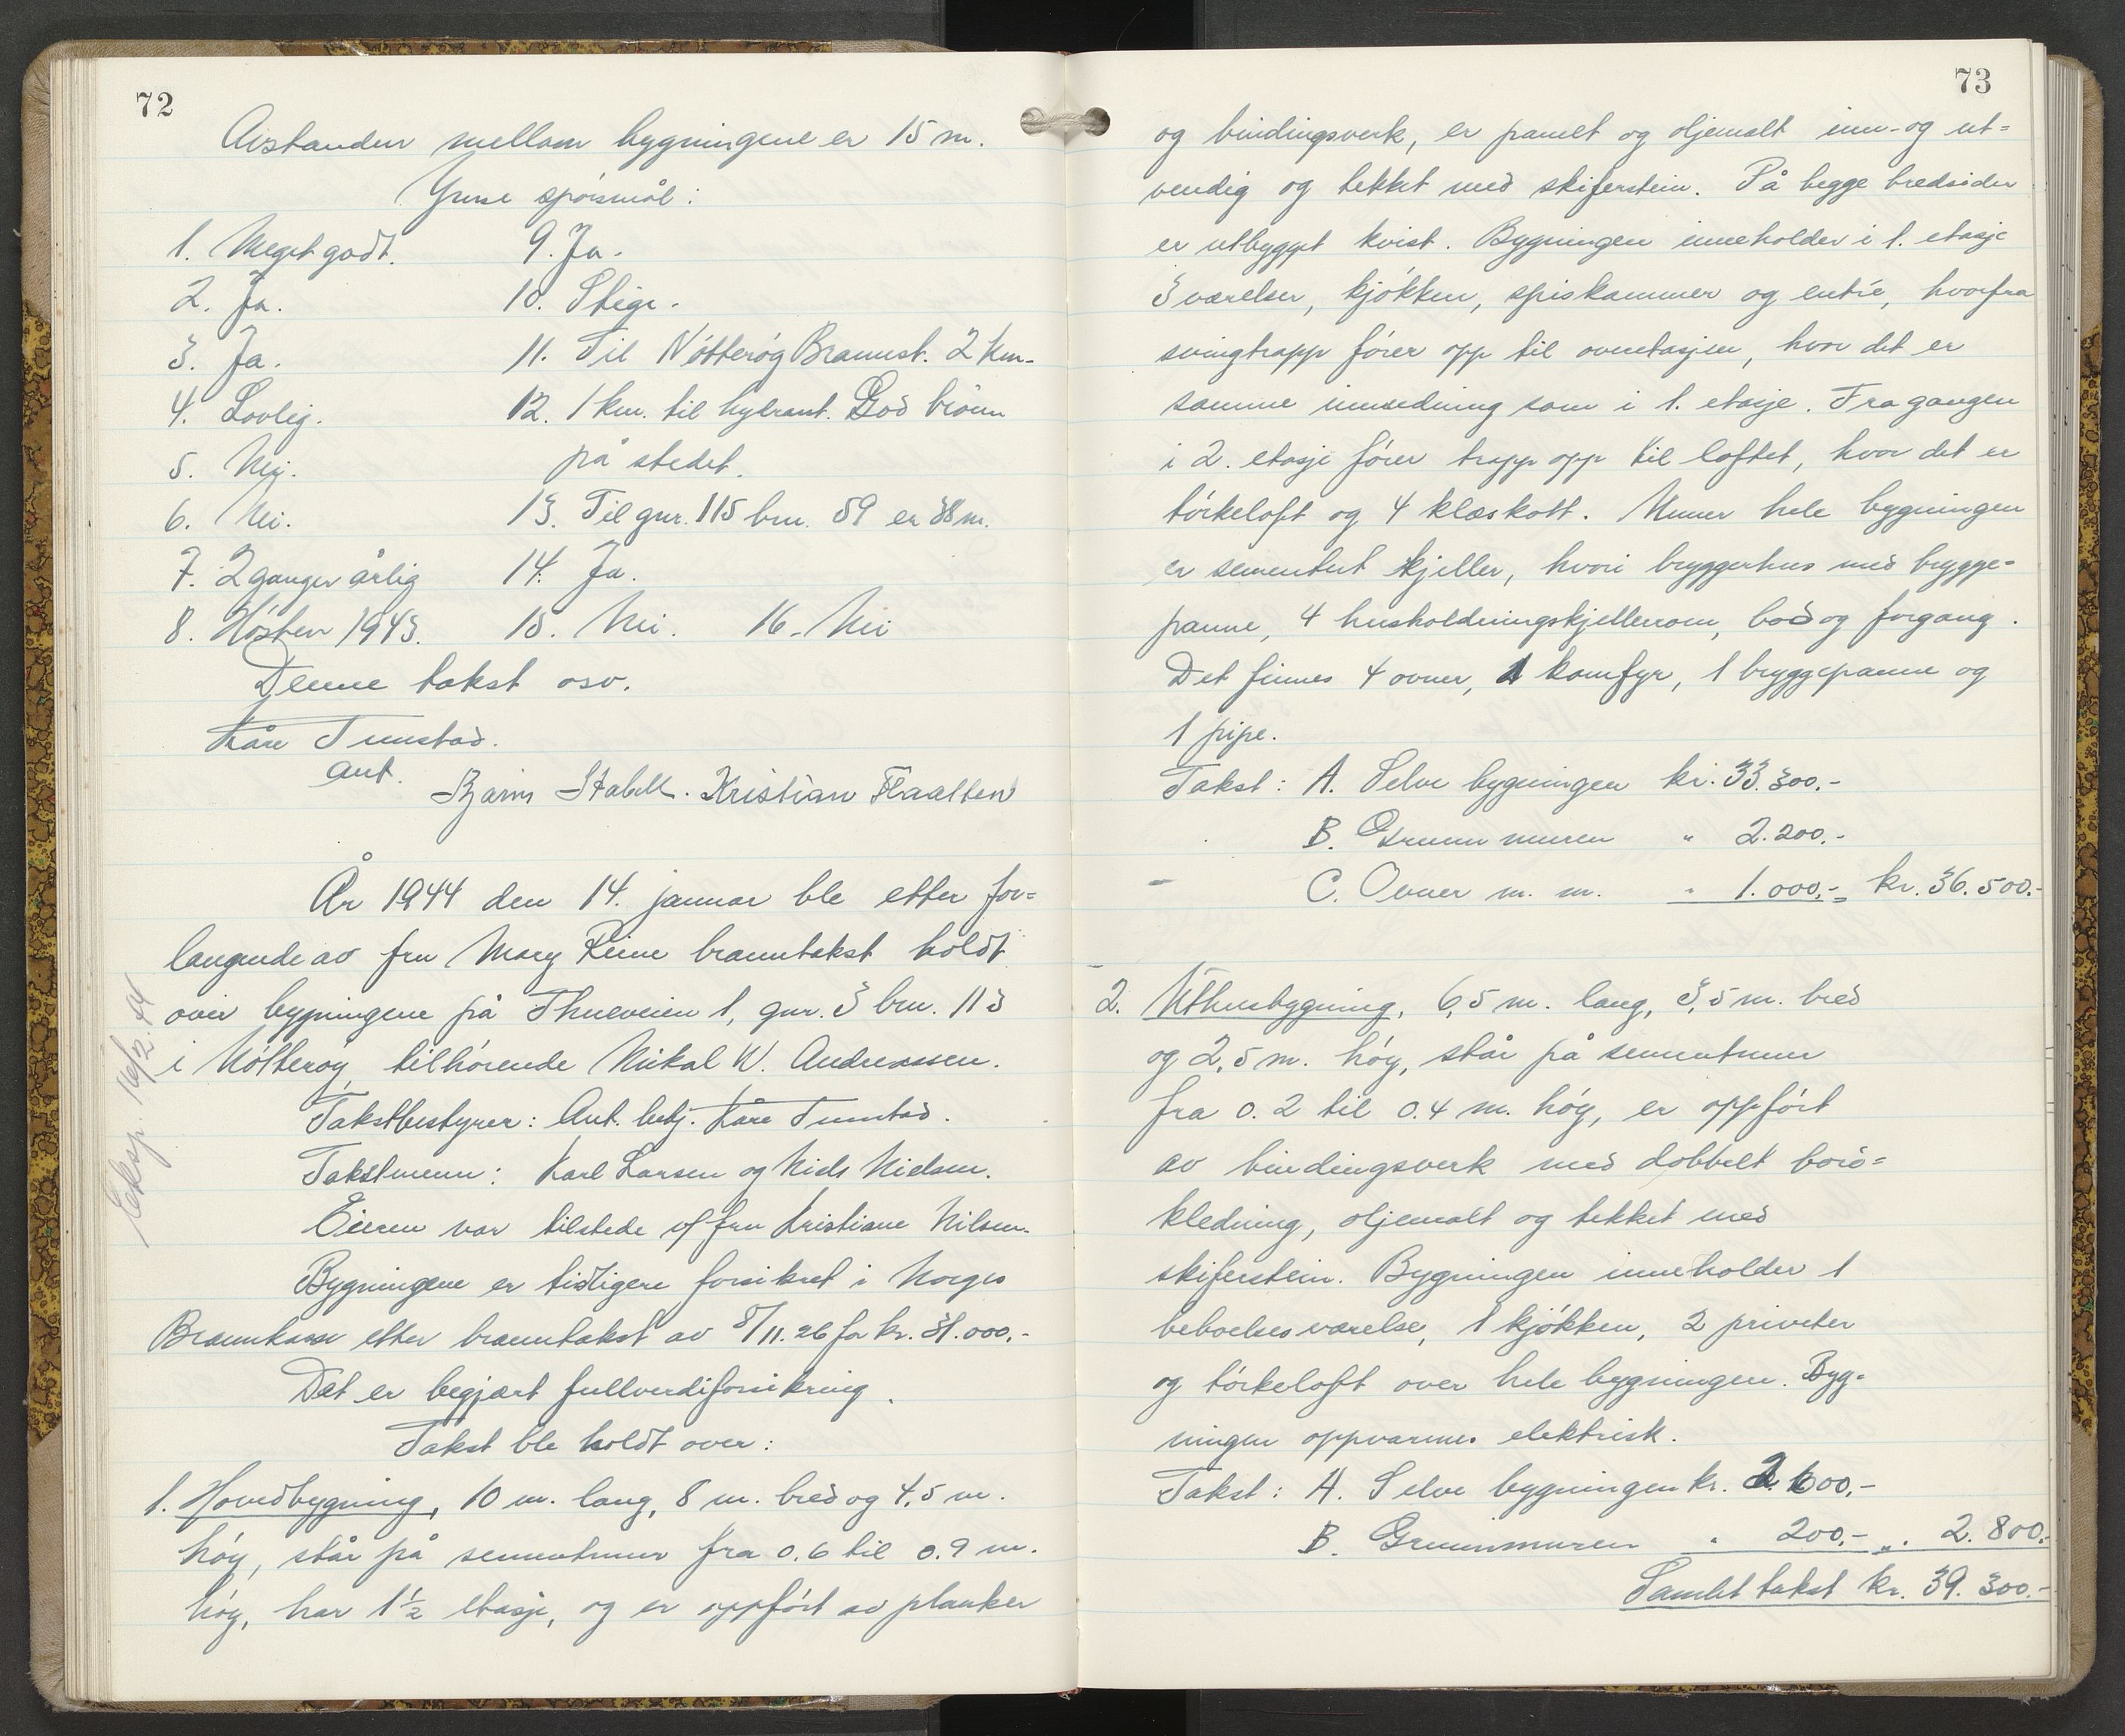 72
Avstanden mellom bygningene er 15 m.
Ymse spørsmål:
1. Meget godt.
2. Ja.
3. Ja.
4. Lovlig.
5. Nei.
6. Nei.
7. 2 ganger årlig
8. Høsten 1943.
9. Ja.
10. Stige.
11. Til Nøtterøy Brannst. 2 km.
12. 1 km. til hydrant. God brønn
på stedet.
13. Til gnr. 115 bnr. 59 er 38 m.
14. Ja.
15. Nei. 16. Nei
Denne takst osv.
Kåre Tunstad.
aut.
Bjarne Stabell. Kristian Flaatten
År 1944 den 14. januar ble etter for=
langende av fru Mary Reine branntakst holdt
over bygningene på Thueveien 1, gnr. 3 bnr. 113
i Nøtterøy, tilhørende Mikal W. Andreassen.
Takstbestyrer: Aut. betj. Kåre Tunstad.
Takstmenn: Karl Larsen og Niels Nielsen.
Eieren var tilstede v/ fru Kristiane Nilsen.
Bygningene er tidligere forsikret i Norges
Brannkasse etter branntakst av 5/11.26 for kr. 31.000,-
Det er begjært fullverdiforsikring.
Takst ble holdt over:
1. Hovedbygning, 10 m. lang, 8 m. bred og 4,5 m.
høy, står på sementmur fra 0.6 til 0.9 m.
høy, har 1½ etasje, og er oppført av planker
Eksp. 16/2.44
73
og bindingsverk, er panelt og oljemalt inn- og ut=
vendig og tekket med skiferstein. På begge bredsider
er utbygget kvist. Bygningen inneholder i 1. etasje
3 værelser, kjøkken, spiskammer og entré, hvorfra
svingtrapp fører opp til overetasjen, hvor det er
samme innredning som i 1. etasje. Fra gangen
i 2. etasje fører trapp opp til loftet, hvor det er
tørkeloft og 4 klæskott. Under hele bygningen
er sementert kjeller, hvori bryggerhus med brygge=
panne, 4 husholdningskjellerrom, bod og forgang.
Det finnes 4 ovner, 1 komfyr, 1 bryggepanne og
1 pipe.
Takst: A. Selve bygningen kr. 33.300.-
B. Grunnmuren " 2.200.-
C. Ovner m. m. " 1.000,- = kr. 36.500.-
2. Uthusbygning, 6,5 m. lang, 3,5 m. bred
og 2,5 m. høy, står på sementmur
fra 0.2 til 0.4 m. høy, er oppført
av bindingsverk med dobbelt bord=
kledning, oljemalt og tekket med
skiferstein. Bygningen inneholder 1
beboelsesværelse, 1 kjøkken, 2 priveter
og tørkeloft over hele bygningen. Byg=
ningen oppvarmes elektrisk.
Takst: A. Selve bygningen kr. 2.600,-
B. Grunnmuren " 200,- = " 2.800.-
Samlet takst kr. 39.300.-